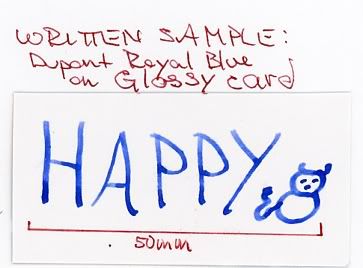 WRITTEN SAMPLE:
Dupont Royal Blue
on Glossy card
HAPPY
50mm